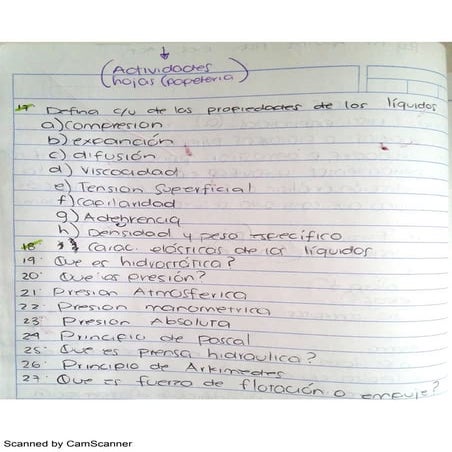 (Actividades
hojas (papeleria)
17 Defina c/u de las propiedades de los líquidos
a) Compresion
b) expanción
c) difusión
d) viscocidad
e) Tension superficial
f) capilaridad
g) Adeherencia
h) Densidad y peso especifico
18 Carac. elásticas de los líquidos
19. Que es hidrostática?
20. Que es presión?
21. Presion Atmosferica
22. Presion manometrica
23. Presion Absoluta
24 Principio de pascal
25. Que es prensa hidraulica?
26. Principio de Arkimedes
27. Que es fuerza de flotación o empuje?
Scanned by CamScanner